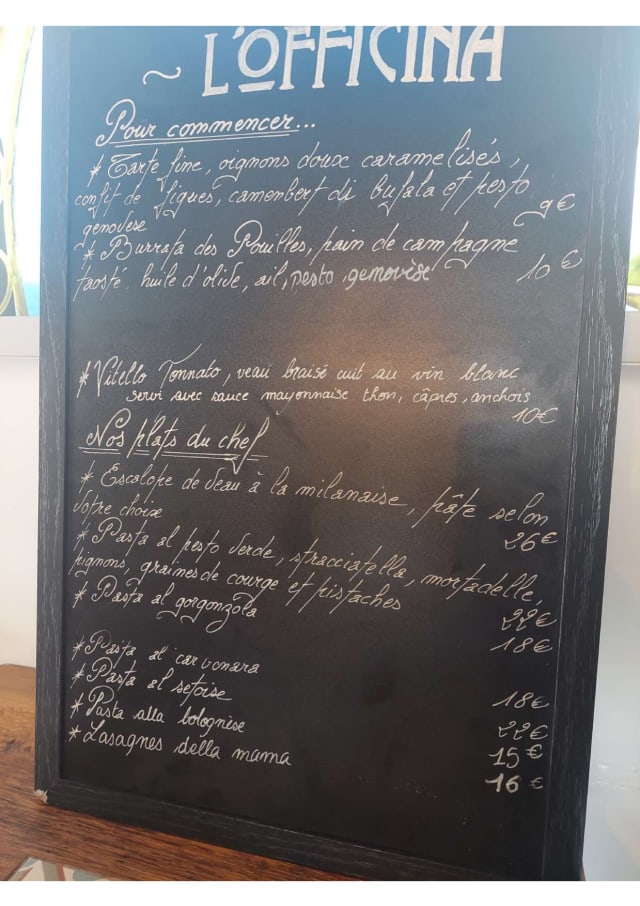 ~ L'OFFICINA
Pour commencer...
* Tarte fine, oignons doux caramelisés,
confit de figues, camembert di bufala et pesto
genovese 9€
* Burrata des Pouilles, pain de campagne
taosté huile d'olive, ail, pesto genovèse 10€
* Vitello Tonnato, veau braisé cuit au vin blanc
servi avec sauce mayonnaise thon, câpres, anchois
10€
Nos plats du chef
* Escalope de veau à la milanaise, pâte selon
votre choix 26€
* Pasta al pesto verde, stracciatella, mortadelle,
pignons, graines de courge et pistaches 22€
* Pasta al gorgonzola 18€
* Pasta al carvonara 18€
* Pasta al setoise 22€
* Pasta alla bolognèse 15€
* Lasagnes della mama 16€